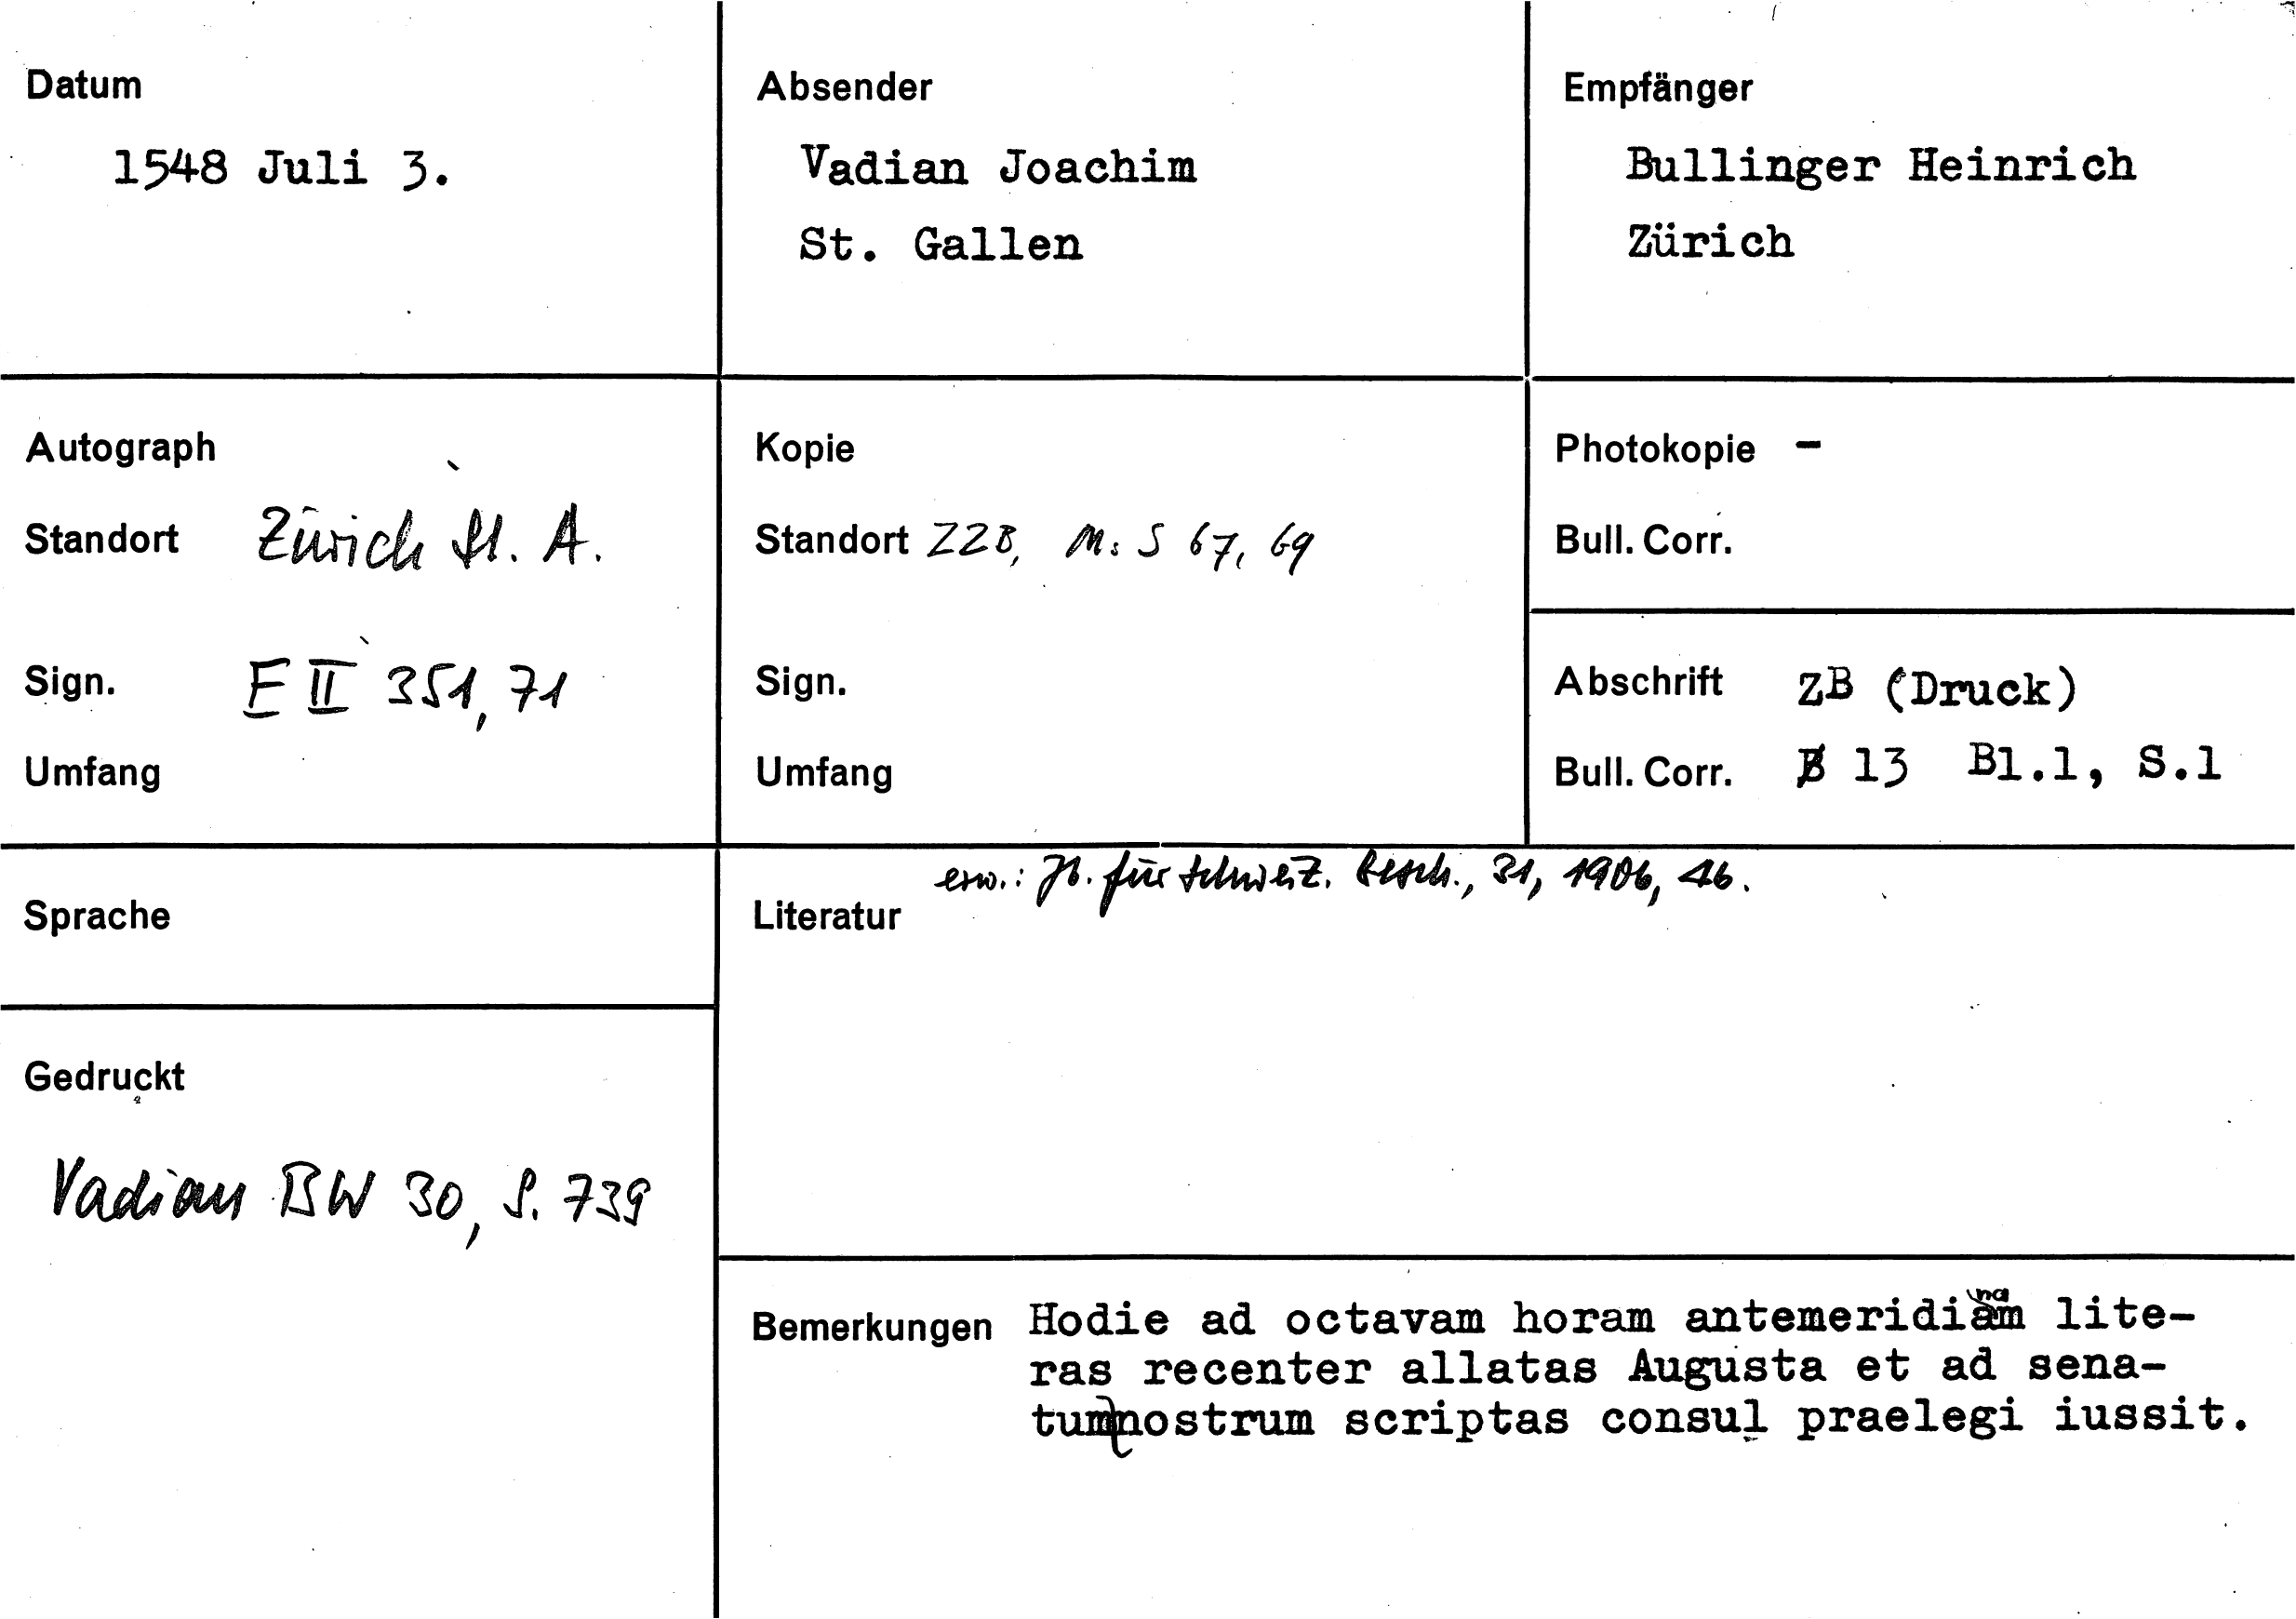 Datum
1548 Juli 3.
Absender
Vadian Joachim
St. Gallen
Empfänger
Bullinger Heinrich
Zürich
Autograph
Standort Zürich St. A.
Sign. E II 351, 71
Umfang
Kopie
Standort ZZB, Ms S 67, 69
Sign.
Umfang
Photokopie -
Bull. Corr.
Abschrift ZB (Druck)
Bull. Corr. B 13 Bl.1, S.1
Sprache
Gedruckt
Vadian BW 30, S. 739
erw.: Jb. für Schweiz. Gesch., 31, 1906, 46.
Literatur
Bemerkungen Hodie ad octavam horam antemeridianam lite-
ras recenter allatas Augusta et ad sena-
tum nostrum scriptas consul praelegi iussit.